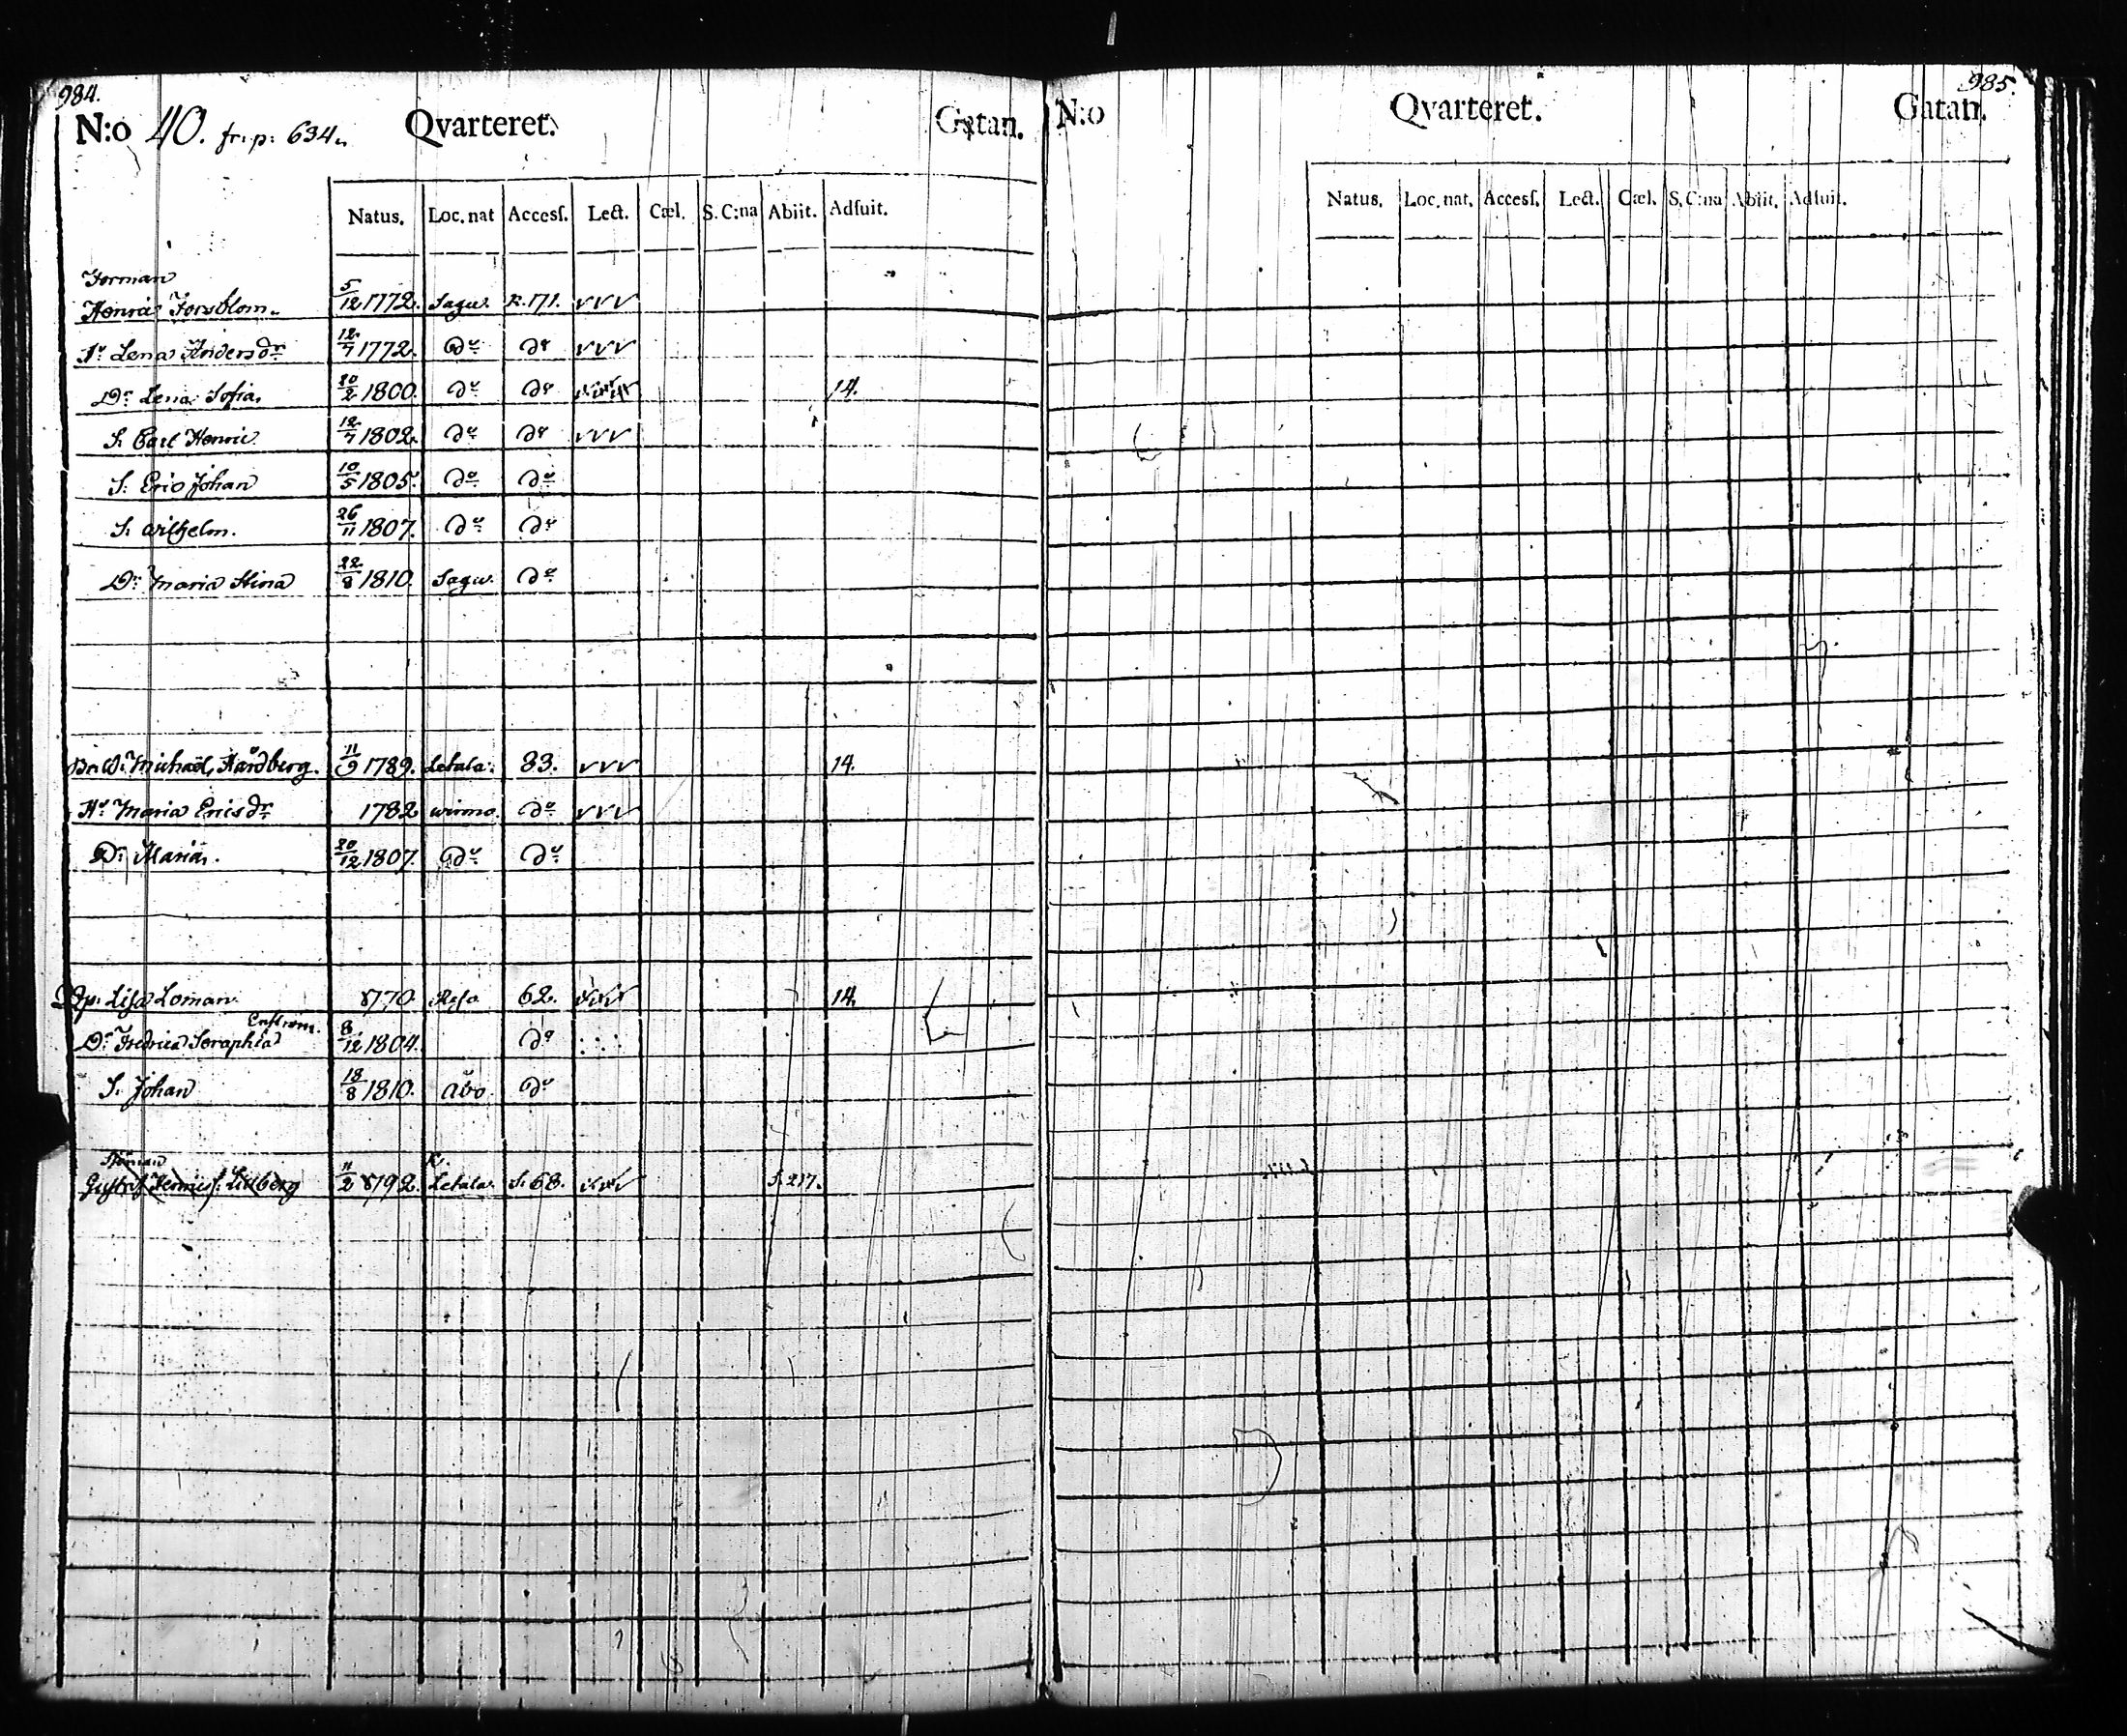 984.
N:o 40. fr. p: 634.
Qvarteret. Gatan.
Natus. Loc. nat Accesſ. Lect. Cæl. S. C:na Abiit. Adfuit.
Forman
Henric Forsblom. 5/12 1772. Sagu. R. 171. v v v
Hu Lena Andersdr 12/7 1772. Do Do v v v
Dr Lena Sofia. 20/2 1800. Do Do 14.
S. Carl Henric 12/7 1802. Do Do v v v
S. Eric Johan 10/5 1805. Do Do
S. Wilhelm. 26/11 1807. Do Do
Dr Maria Stina 22/8 1810. Sagu. Do
Michael Hårdberg. 11/9 1789. Letala. 83. v v v 14.
Hu Maria Ericsdr 1782 wirmo. Do v v v
Dr Maria. 20/12 1807. Do Do
Lisa Loman 1770. Reso 62. 14.
Enström.
Dr Fredrica Seraphia 8/12 1804. Do
S. Johan 18/8 1810. Åbo. Do
Gustaf Henrics. Lillberg 11/2 1792. Letala. S. 68. S. 217.
985.
N:o Qvarteret. Gatan.
Natus. Loc. nat. Accesſ. Lect. Cæl. S. C:na Abiit. Adfuit.